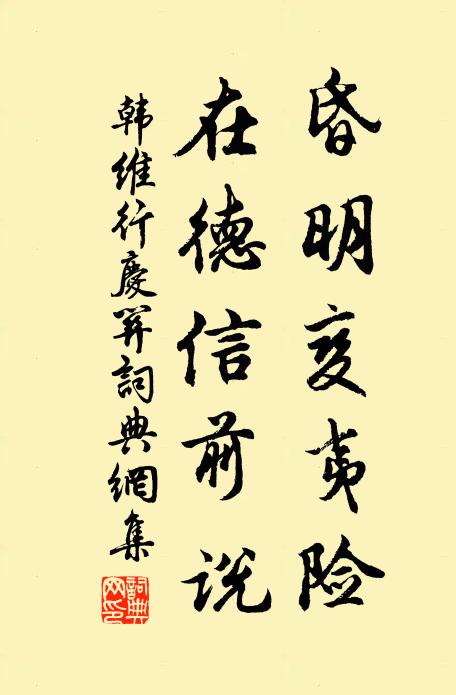 昏明变夷险
在德信前说
韩维行慶关詞典網集
詞典
网印